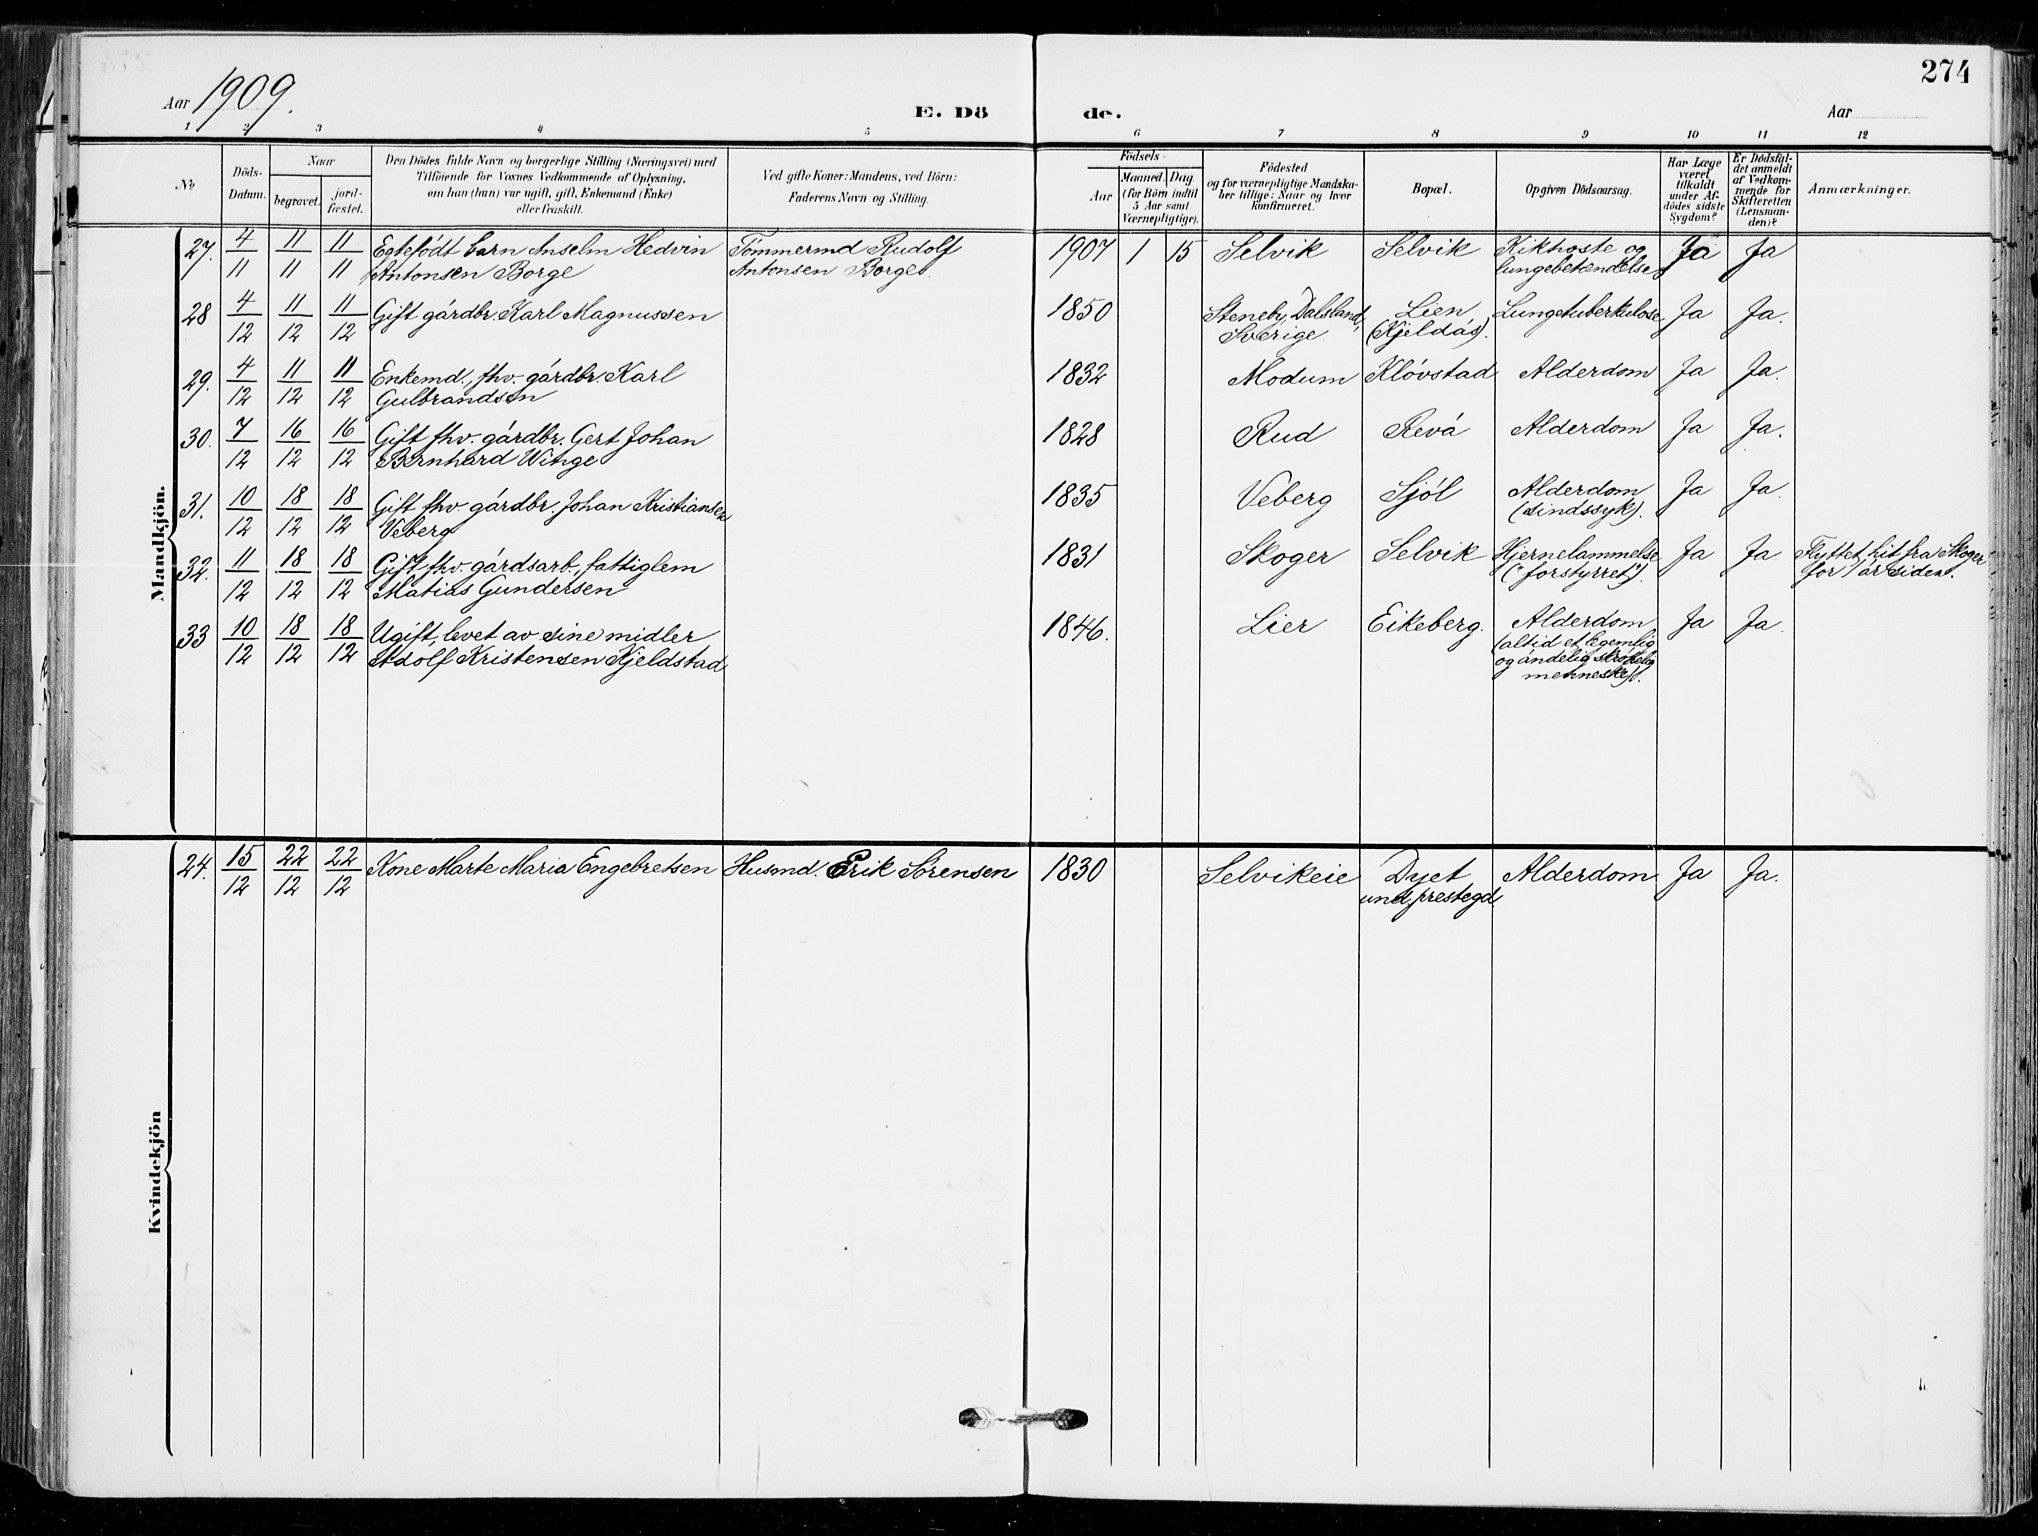 274
Aar 1909.
E. Döde.
Aar
1 2 3 4 5 6 7 8 9 10 11 12
No
Döds-Datum.
Naar
begravet.
jordfæstet.
Den Dödes fulde Navn og borgerlige Stilling (Næringsvei) med
Tilföiende for Voxnes Vedkommende af Oplysning,
om han (hun) var ugift, gift, Enkemand (Enke)
eller fraskilt.
Ved gifte Koner: Mandens, ved Börn:
Faderens Navn og Stilling.
Födsels-
Aar
Maaned. Dag
(for Börn indtil
5 Aar samt
Værnepligtige).
Födested
og for værnepligtige Mandska-
ber tillige: Naar og hvor
konfirmeret.
Bopæl.
Opgiven Dödsaarsag.
Har Læge
været
tilkaldt
under Af-
dödes sidste
Sygdom?
Er Dödsfal-
det anmeldt
af Vedkom-
mende for
Skifteretten
(Lensman-
den)?
Anmærkninger.
Mandkjön.
27. 4/11 11/11 11/11 Egtefödt barn Anselm Hedvin Tömmermd Rudolf 1907 1 15 Selvik Selvik Kikhoste og Ja Ja
Antonsen Borge Antonsen Borge. lungebetændelse
28 4/12 11/12 11/12 Gift gårdbr. Karl Magnussen 1850 Steneby, Dalsland, Lien Lungetuberkulose Ja Ja.
Sverige (Kjeldås).
29. 4/12 11/12 11/12 Enkemd., fhv. gårdbr. Karl 1832 Modum Klövstad Alderdom Ja Ja.
Gulbrandsen
30. 7/12 16/12 16/12 Gift fhv. gårdbr. Gert Johan 1828 Rud Revå Alderdom Ja Ja.
Bernhard Winge
31. 10/12 18/12 18/12 Gift fhv gårdbr. Johan Kristiansen 1835 Veberg Sjöl Alderdom Ja Ja.
Veberg (sindssyk).
32. 11/12 18/12 18/12 Gift fhv. gårdsarb., fattiglem 1831 Skoger Selvik Hjernelammelse Ja Ja. Flyttet hit fra Skoger
Matias Gundersen ("forstyrret"). for 1 år siden.
33 10/12 18/12 18/12 Ugift, levet av sine midler 1846. Lier Eikeberg. Alderdom Ja Ja.
Adolf Kristensen Kjeldstad (altid et legemlig
og åndelig skrøpelig
menneske).
Kvindekjön
24. 15/12 22/12 22/12 Kone Marte Maria Engebretsen Husmd. Erik Sörensen 1830 Selvikeie Dyet Alderdom Ja Ja.
und. prestegd.